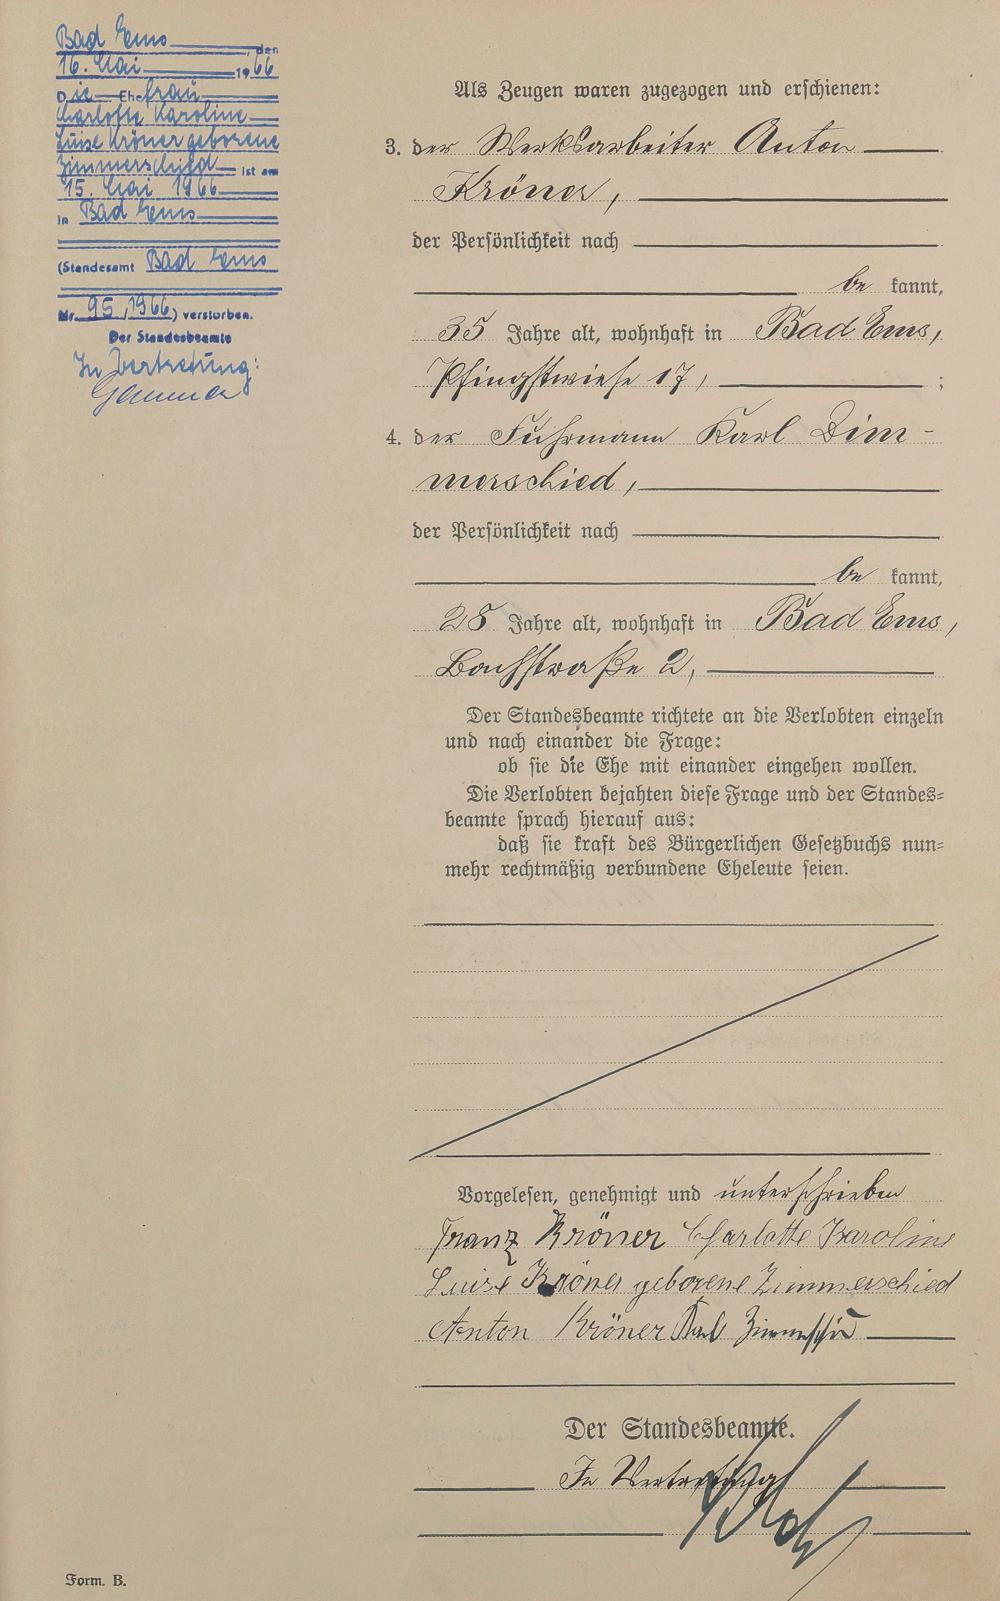 Bad Ems, den
16. Mai 1966
Die Ehefrau
Charlotte Karoline
Luise Kröner geborene
Zimmerschied ist am
15. Mai 1966
in Bad Ems
(Standesamt Bad Ems
Nr. 95/1966) verstorben.
Der Standesbeamte
In Vertretung:
Als Zeugen waren zugezogen und erschienen:
3. der Werksarbeiter Anton
Kröner,
der Persönlichkeit nach
be kannt,
35 Jahre alt, wohnhaft in Bad Ems,
Pfingstwiese 17, ;
4. der Fuhrmann Karl Zim-
merschied,
der Persönlichkeit nach
be kannt,
28 Jahre alt, wohnhaft in Bad Ems,
Bachstraße 2,
Der Standesbeamte richtete an die Verlobten einzeln
und nach einander die Frage:
ob sie die Ehe mit einander eingehen wollen.
Die Verlobten bejahten diese Frage und der Standes=
beamte sprach hierauf aus:
daß sie kraft des Bürgerlichen Gesetzbuchs nun=
mehr rechtmäßig verbundene Eheleute seien.
Vorgelesen, genehmigt und unterschrieben
Franz Kröner Charlotte Karoline
Luise Kröner geborene Zimmerschied
Anton Kröner Karl Zimmerschied
Der Standesbeamte.
In Vertretung
Form. B.